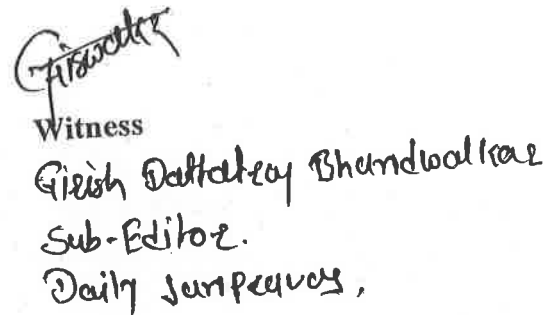 Witness
Girish Dattatray Bhandwalkar
Sub-Editor.
Daily